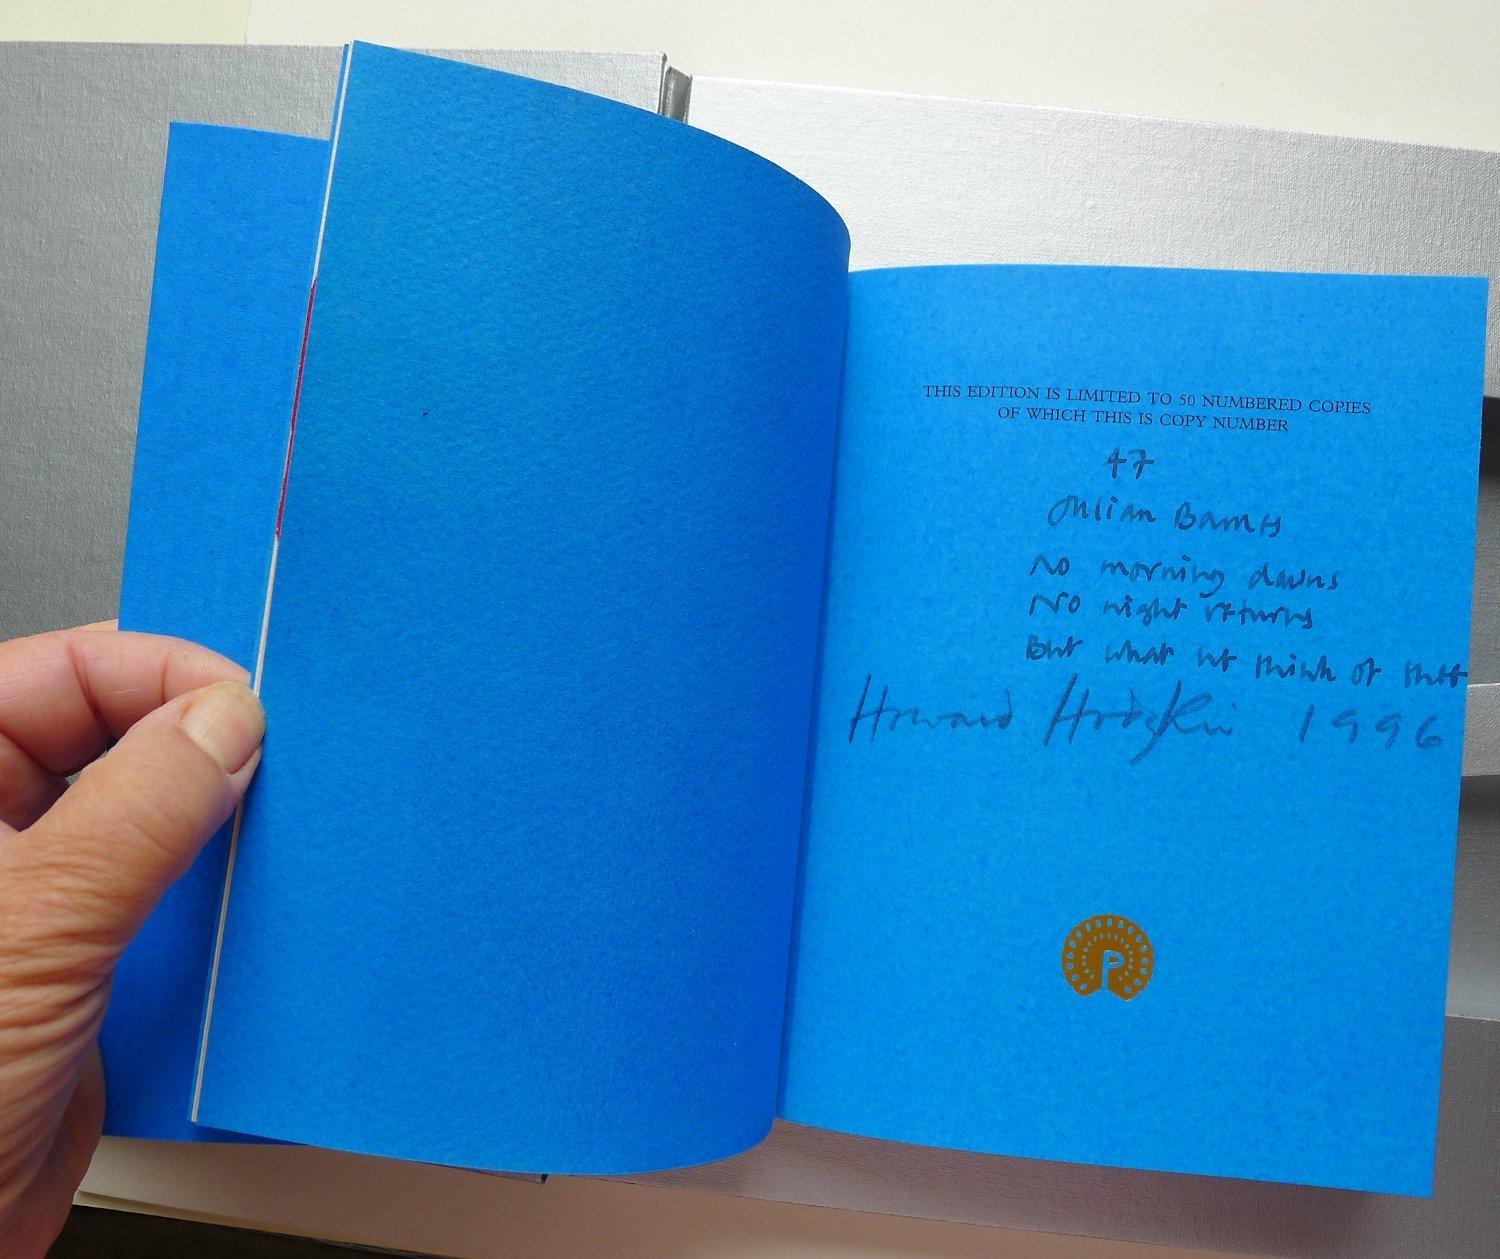 THIS EDITION IS LIMITED TO 50 NUMBERED COPIES
OF WHICH THIS IS COPY NUMBER
47
Julian Barnes
No morning dawns
No night returns
But what we think of thee
Howard Hodgkin 1996
P